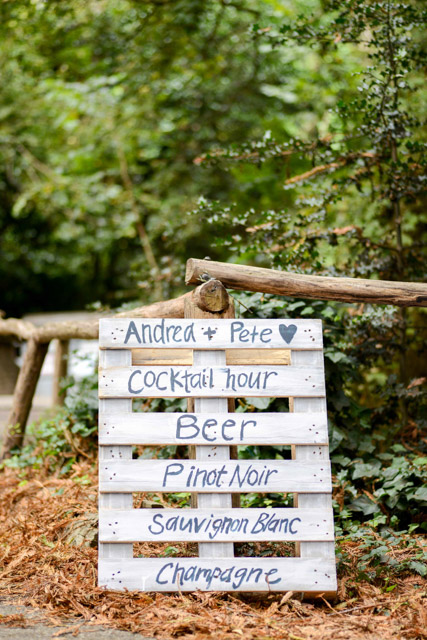 Andrea + Pete ♥
Cocktail hour
Beer
Pinot Noir
Sauvignon Blanc
Champagne